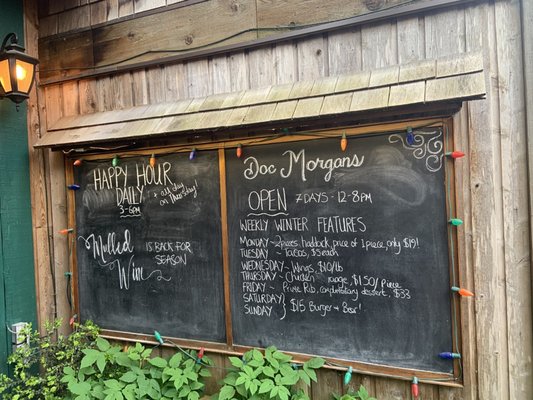 HAPPY HOUR
DAILY
3-6PM
+ all day
on Thursday!
Mulled
Wine
IS BACK FOR
SEASON
Doc Morgans
OPEN 7 DAYS - 12-8PM
WEEKLY WINTER FEATURES
MONDAY - 2 pieces haddock, price of 1 piece, only $19!
TUESDAY - Tacos, $5 each
WEDNESDAY - Wings, $10/lb
THURSDAY - Chicken range, $1.50/Piece
FRIDAY - Prime Rib, complimentary dessert, $33
SATURDAY
SUNDAY } $15 Burger + Beer!